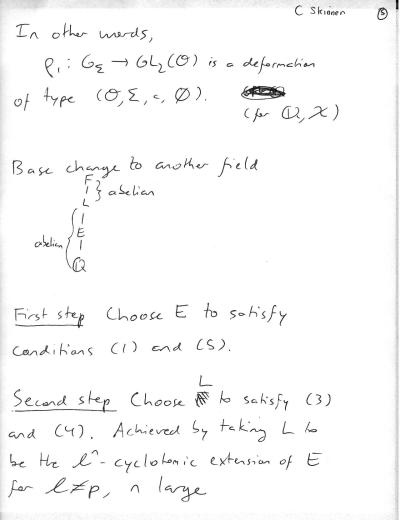 C Skinner ⑤
In other words,
ρ₁ : G_Σ → GL₂(O) is a deformation
of type (O, Σ, c, ∅).
(for Q, χ)
Base change to another field
F
| } abelian
L
|
abelian { E
|
Q
First step Choose E to satisfy
conditions (1) and (5).
L
Second step Choose to satisfy (3)
and (4). Achieved by taking L to
be the lⁿ-cyclotomic extension of E
for l≠p, n large